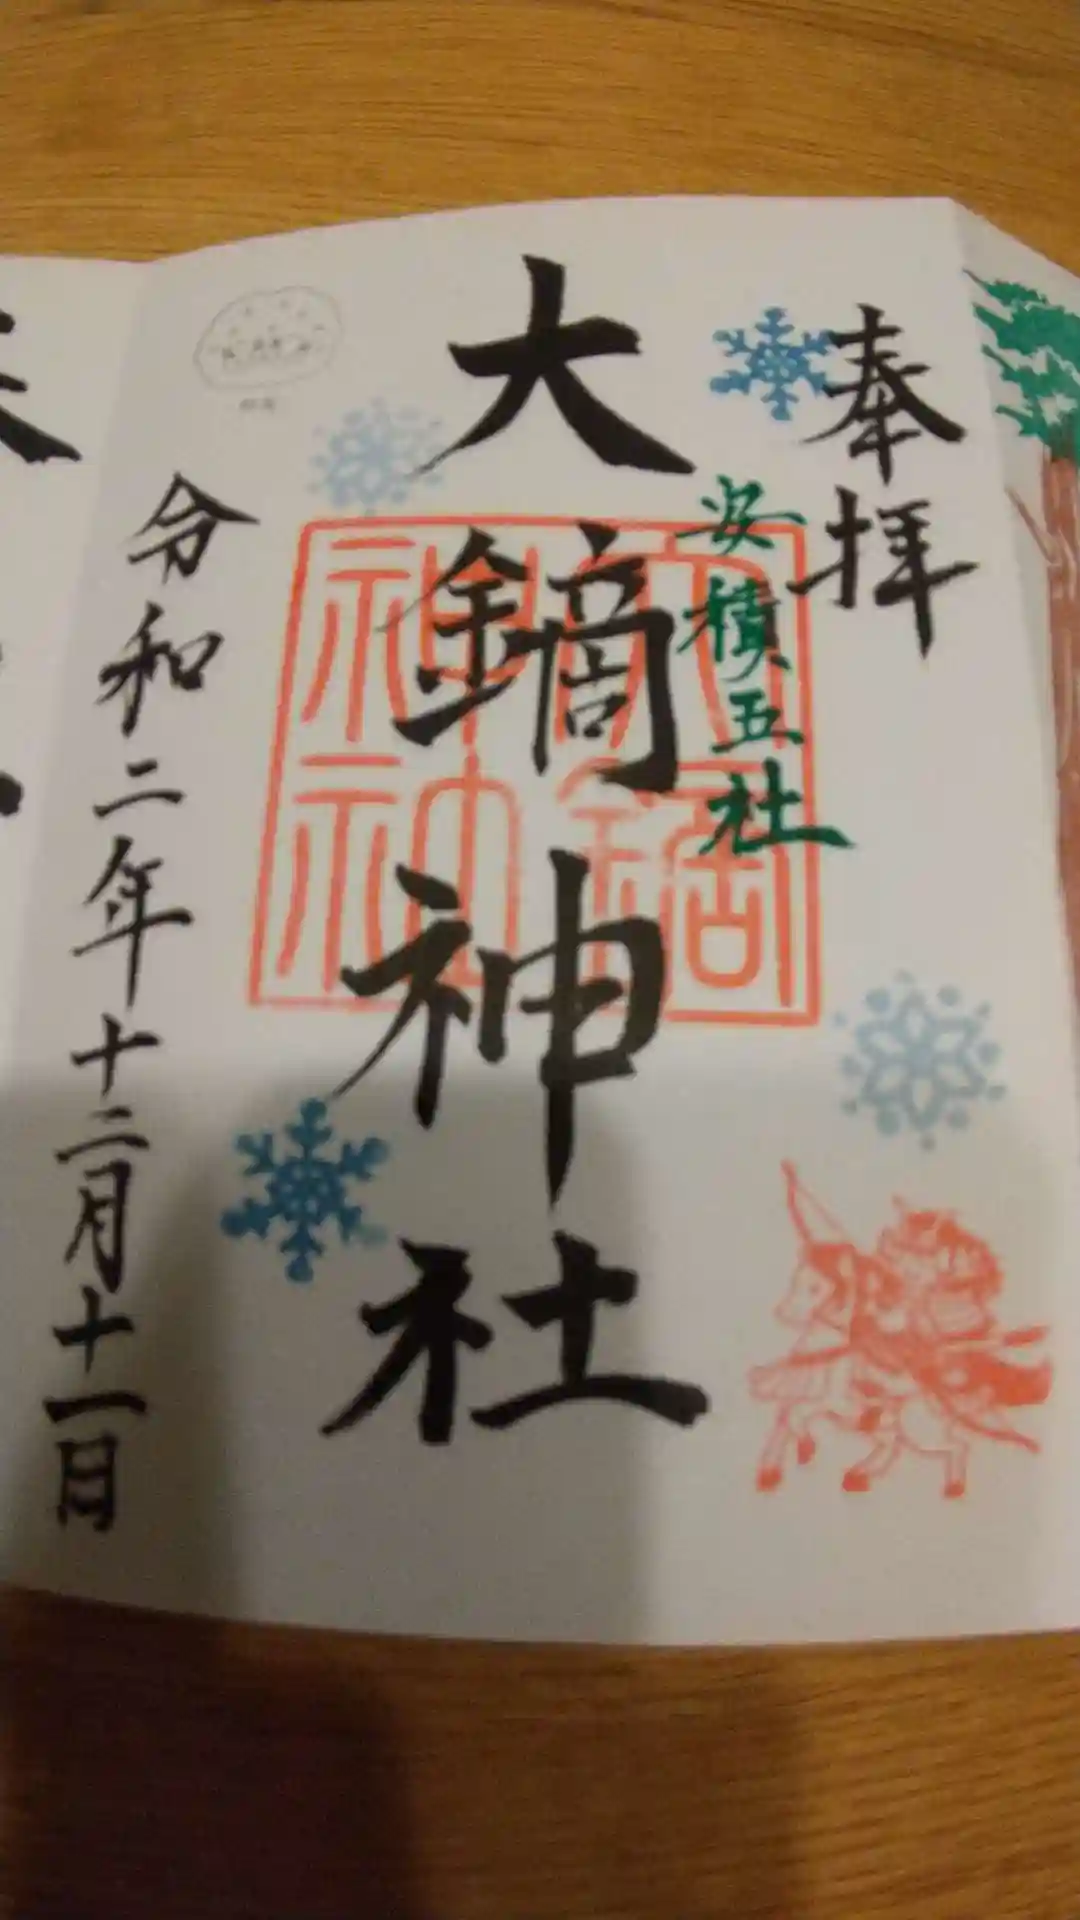 奉拝
安積五社
大鏑神社
大鏑神社
令和二年十二月十一日